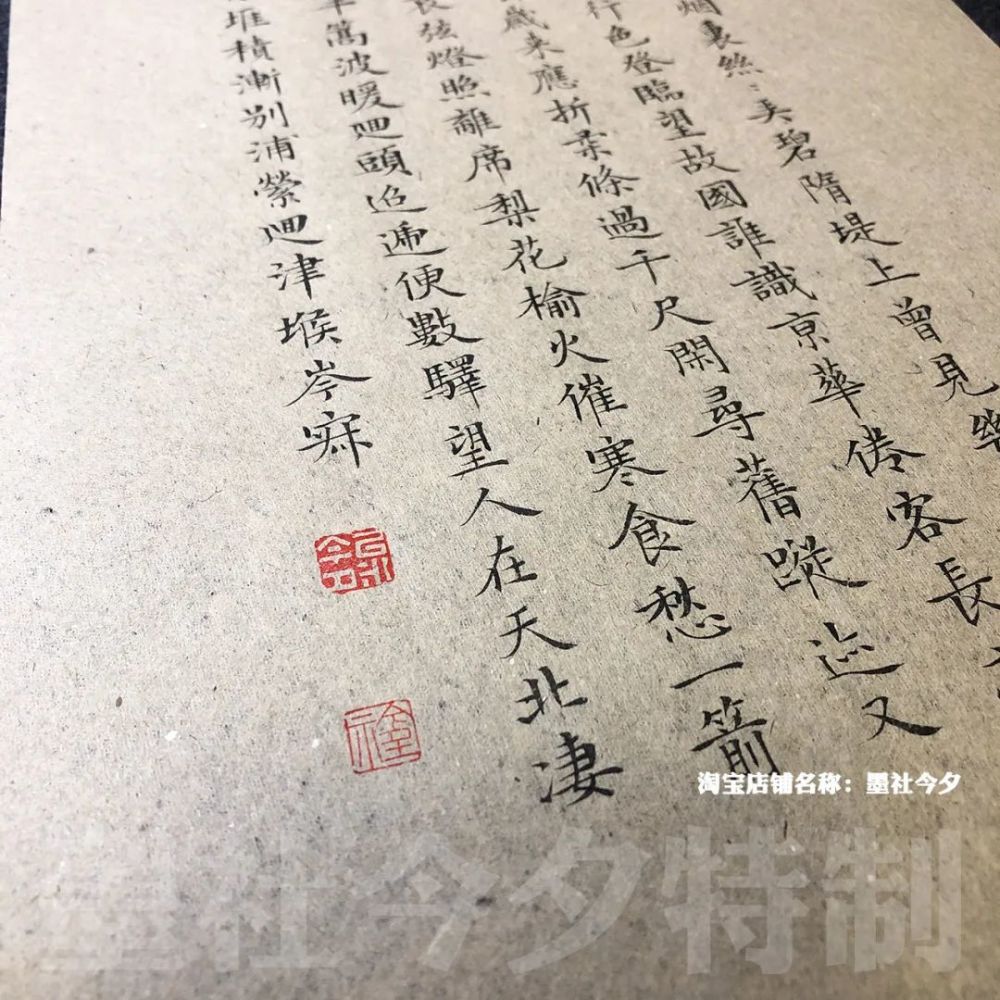 烟裏絲〻弄碧隋堤上曾見幾
行色登臨望故國誰識京華倦客長
歲来應折柔條過千尺閑尋舊蹤迹又
弦燈照離席梨花榆火催寒食愁一箭
半篙波暖迴頭迢遞便數驛望人在天北凄
堆積漸别浦縈迴津堠岑寂
淘宝店铺名称：墨社今夕
墨社今夕特制